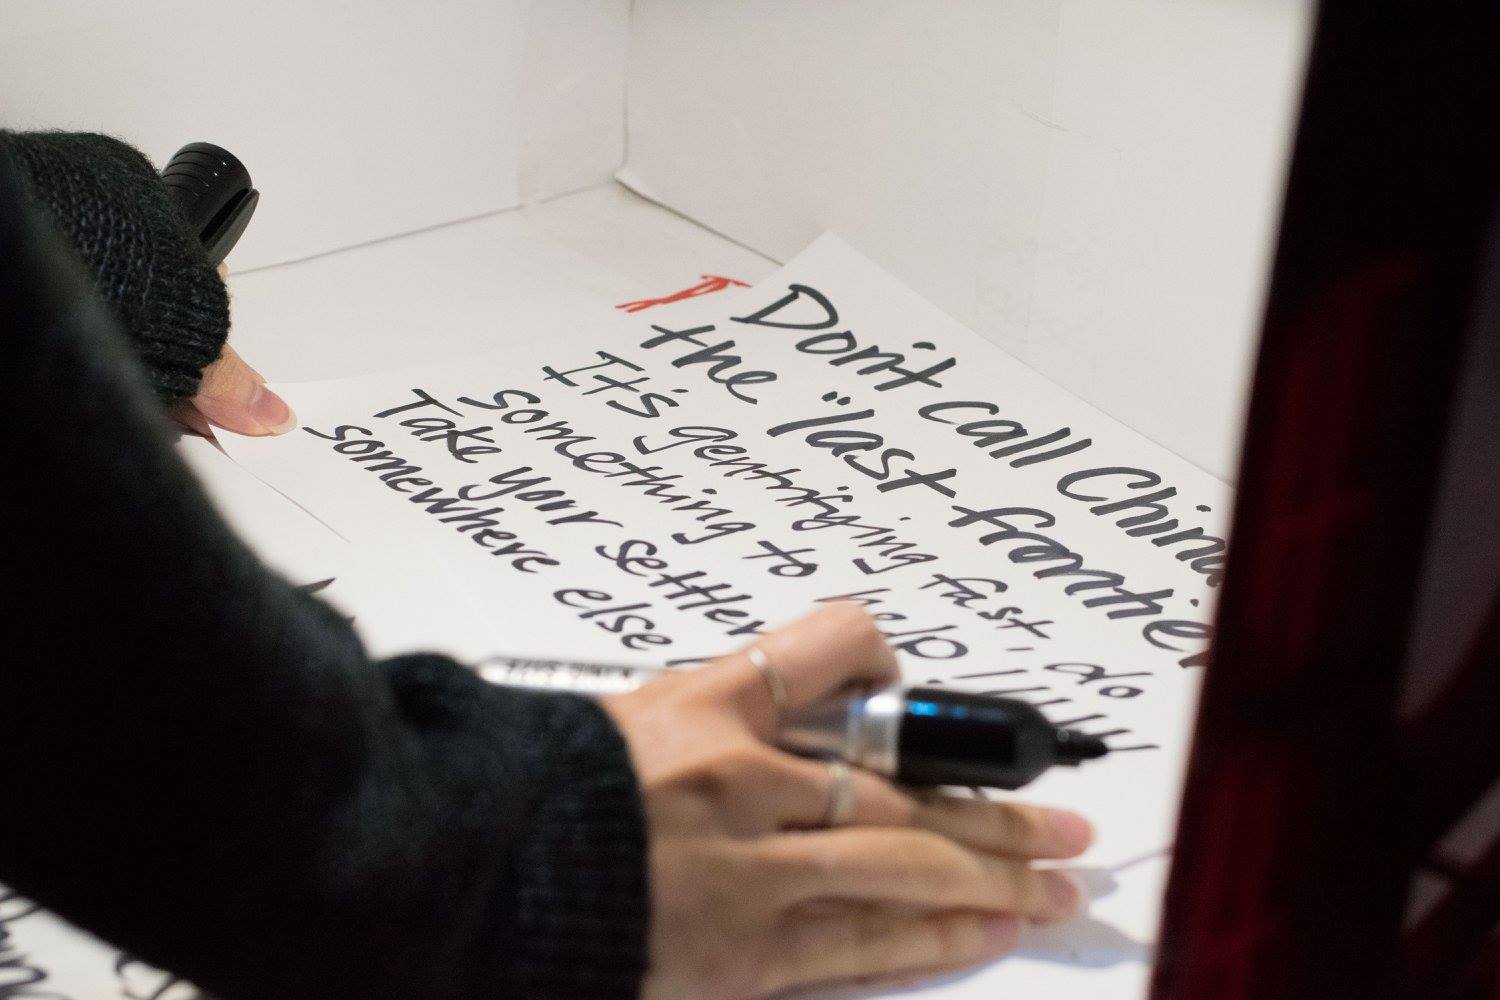 Don't call China
the "last frontier
It's gentrifying fast, do
something to help!!!!!!
Take your settler
somewhere else